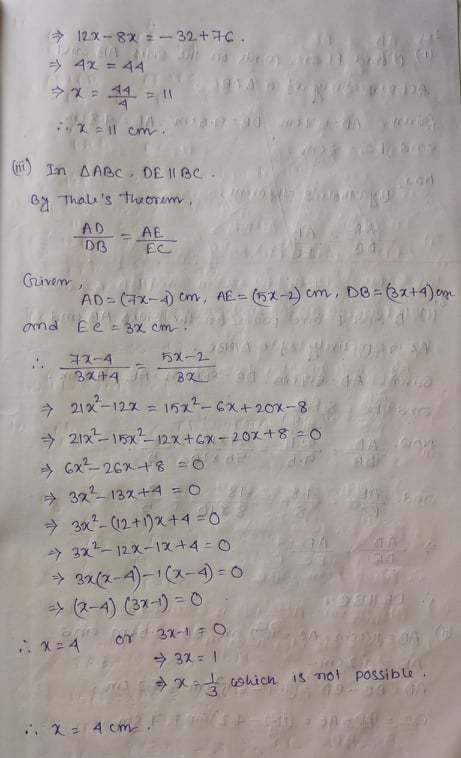 ⇒ 12x-8x = -32+76.
⇒ 4x = 44
⇒ x = 44/4 = 11
∴ x = 11 cm.
(iii) In ΔABC, DE || BC.
By Thale's theorem,
AD/DB = AE/EC
Given,
AD = (7x-4) cm, AE = (5x-2) cm, DB = (3x+4) cm
and EC = 3x cm.
∴ 7x-4/3x+4 = 5x-2/3x
⇒ 21x²-12x = 15x²-6x+20x-8
⇒ 21x²-15x²-12x+6x-20x+8 = 0
⇒ 6x²-26x+8 = 0
⇒ 3x²-13x+4 = 0
⇒ 3x²-(12+1)x+4 = 0
⇒ 3x²-12x-1x+4 = 0
⇒ 3x(x-4)-1(x-4) = 0
⇒ (x-4) (3x-1) = 0
∴ x = 4 or 3x-1 = 0
⇒ 3x = 1
⇒ x = 1/3 which is not possible.
∴ x = 4 cm.